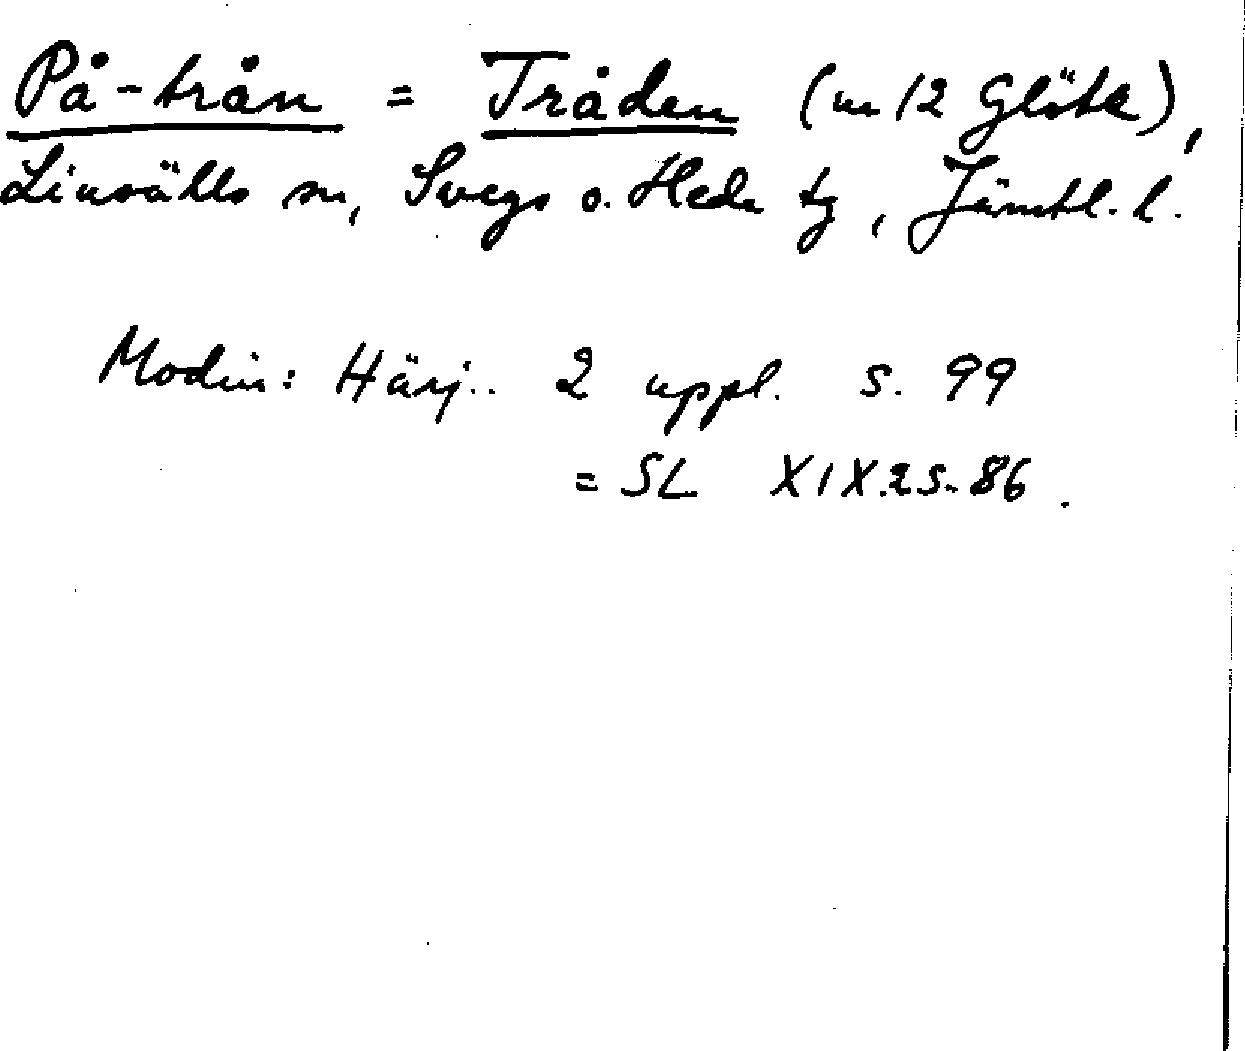 På-trån = Tråden (nr 12 Glöte),
Linsälls sn, Svegs o. Hede tg, Jämtl. l.
Modin: Härj.. 2 uppl. s. 99
= SL XIX.2 S. 86.